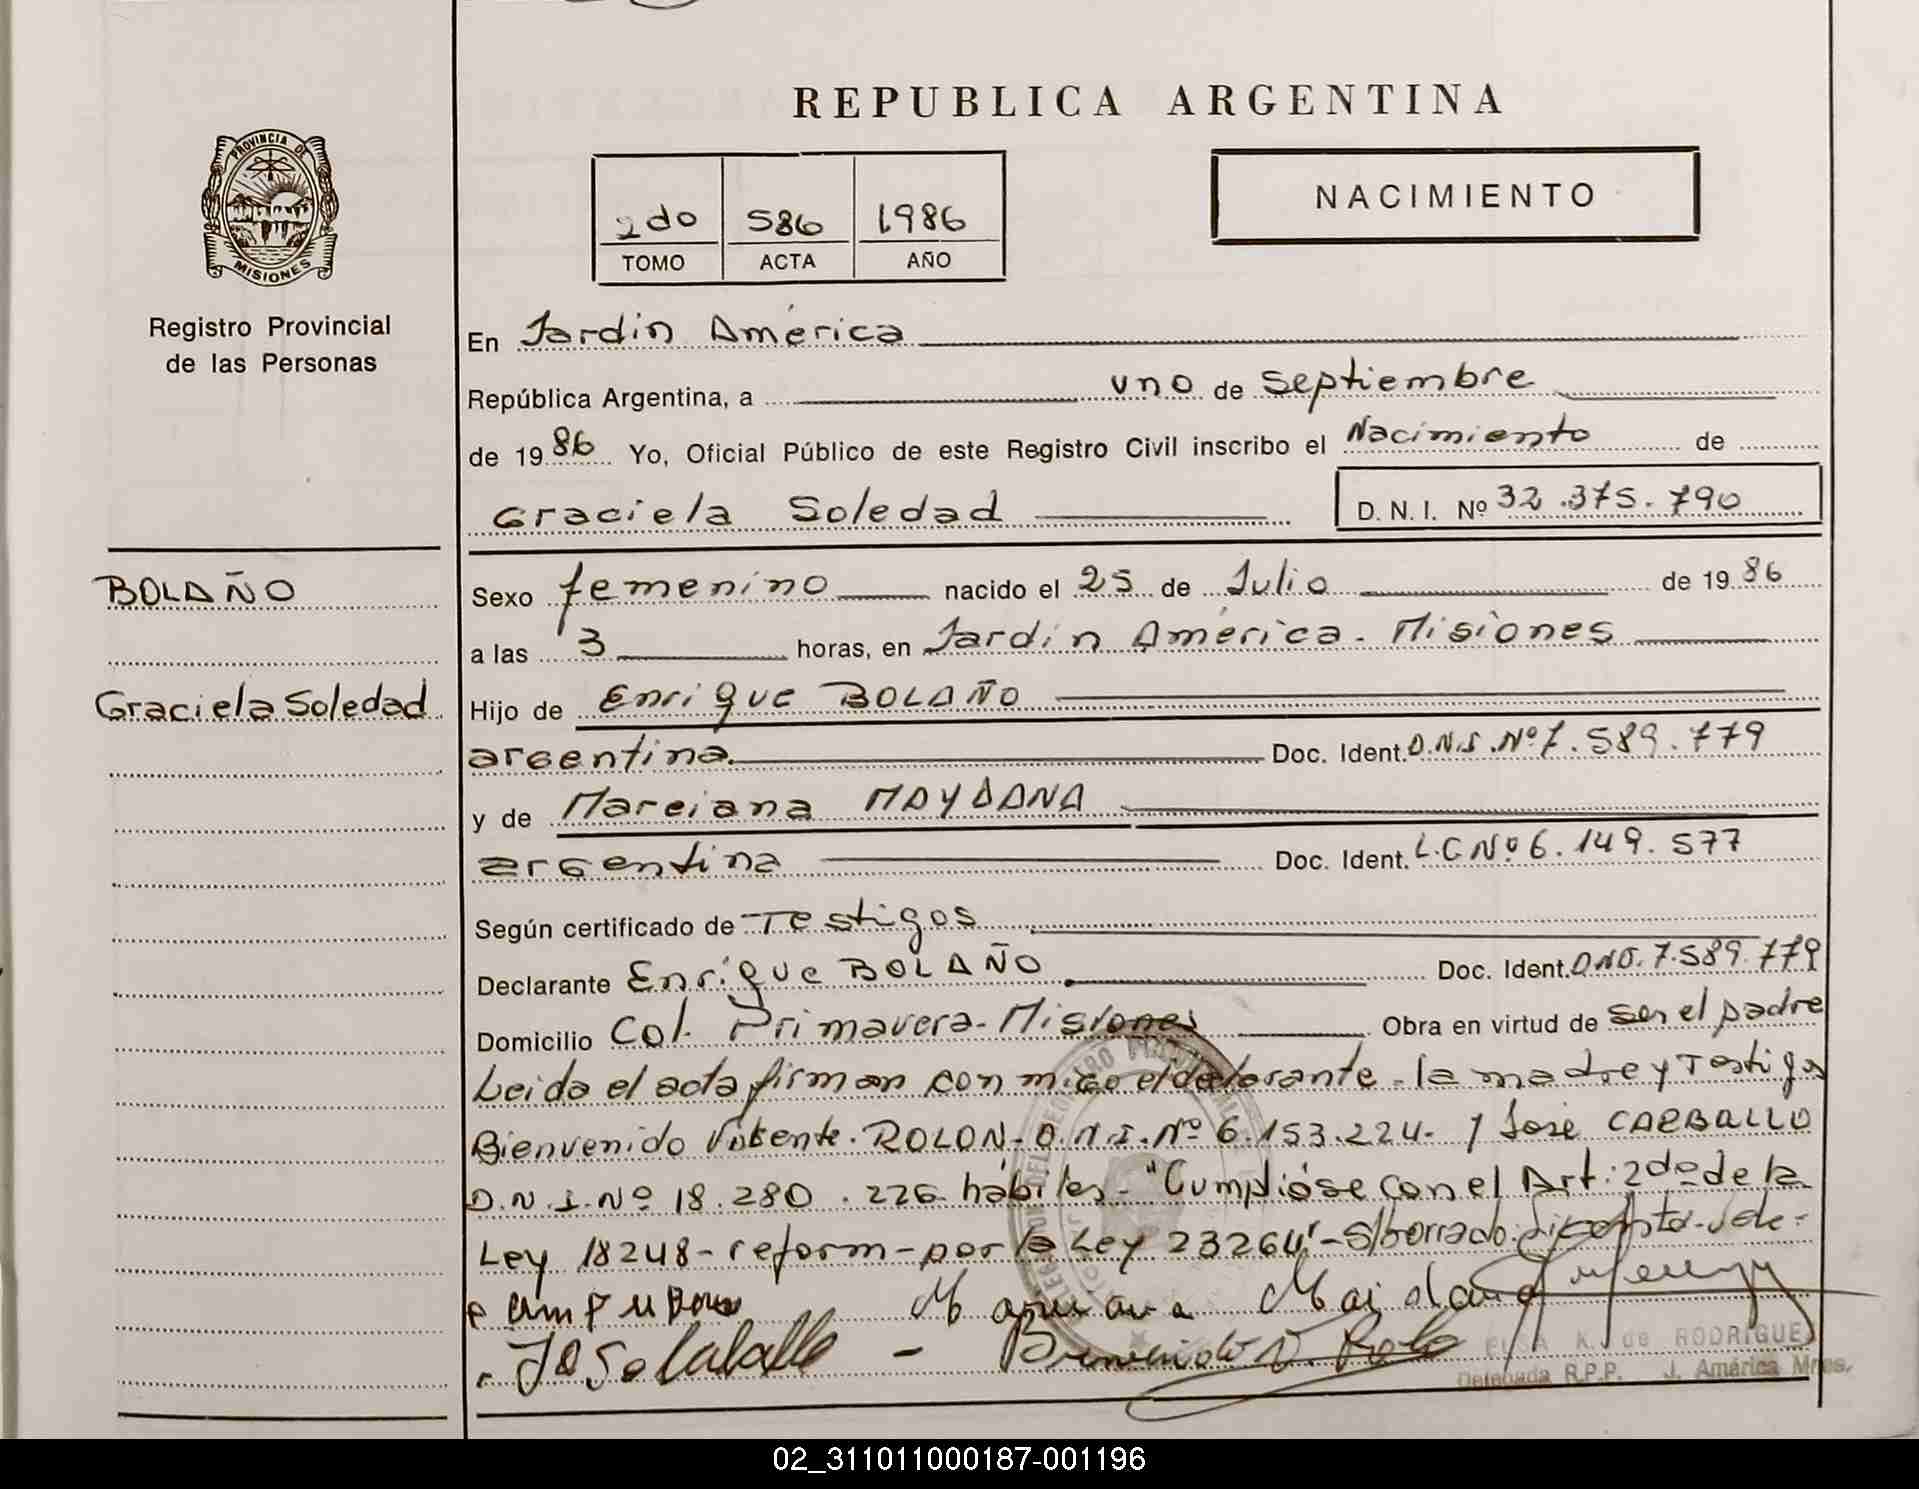 REPUBLICA ARGENTINA
PROVINCIA DE
MISIONES
Registro Provincial
de las Personas
2do 586 1986
TOMO ACTA AÑO
NACIMIENTO
En Jardín América
República Argentina, a uno de septiembre
de 1986 Yo, Oficial Público de este Registro Civil inscribo el Nacimiento de
Graciela Soledad D. N. I. Nº 32.375.790
BOLAÑO
Graciela Soledad
Sexo femenino nacido el 25 de Julio de 1986
a las 3 horas, en Jardín América - Misiones
Hijo de Enrique BOLAÑO
argentina. Doc. Ident. D.N.I. Nº 7.589.779
y de Marciana MAYDANA
argentina Doc. Ident. L.C Nº 6.149.577
Según certificado de Testigos
Declarante Enrique BOLAÑO Doc. Ident. DNI. 7.589.779
Domicilio Col. Primavera - Misiones Obra en virtud de ser el padre
Leida el acta firman con migo el declarante - la madre y Testigos
Bienvenido Vicente ROLON - D.N.I. Nº 6.153.224 - y José CARBALLO
D.N.I. Nº 18.280.226 hábiles - "Cumplióse con el Art: 2do de la
Ley 18248 - reform - por la Ley 23264" - S/borrado:
Maidana
Bienvenido V. Rolo
ELSA K. de RODRIGUE
Delegada R.P.P. J. América Mnes.
02_311011000187-001196